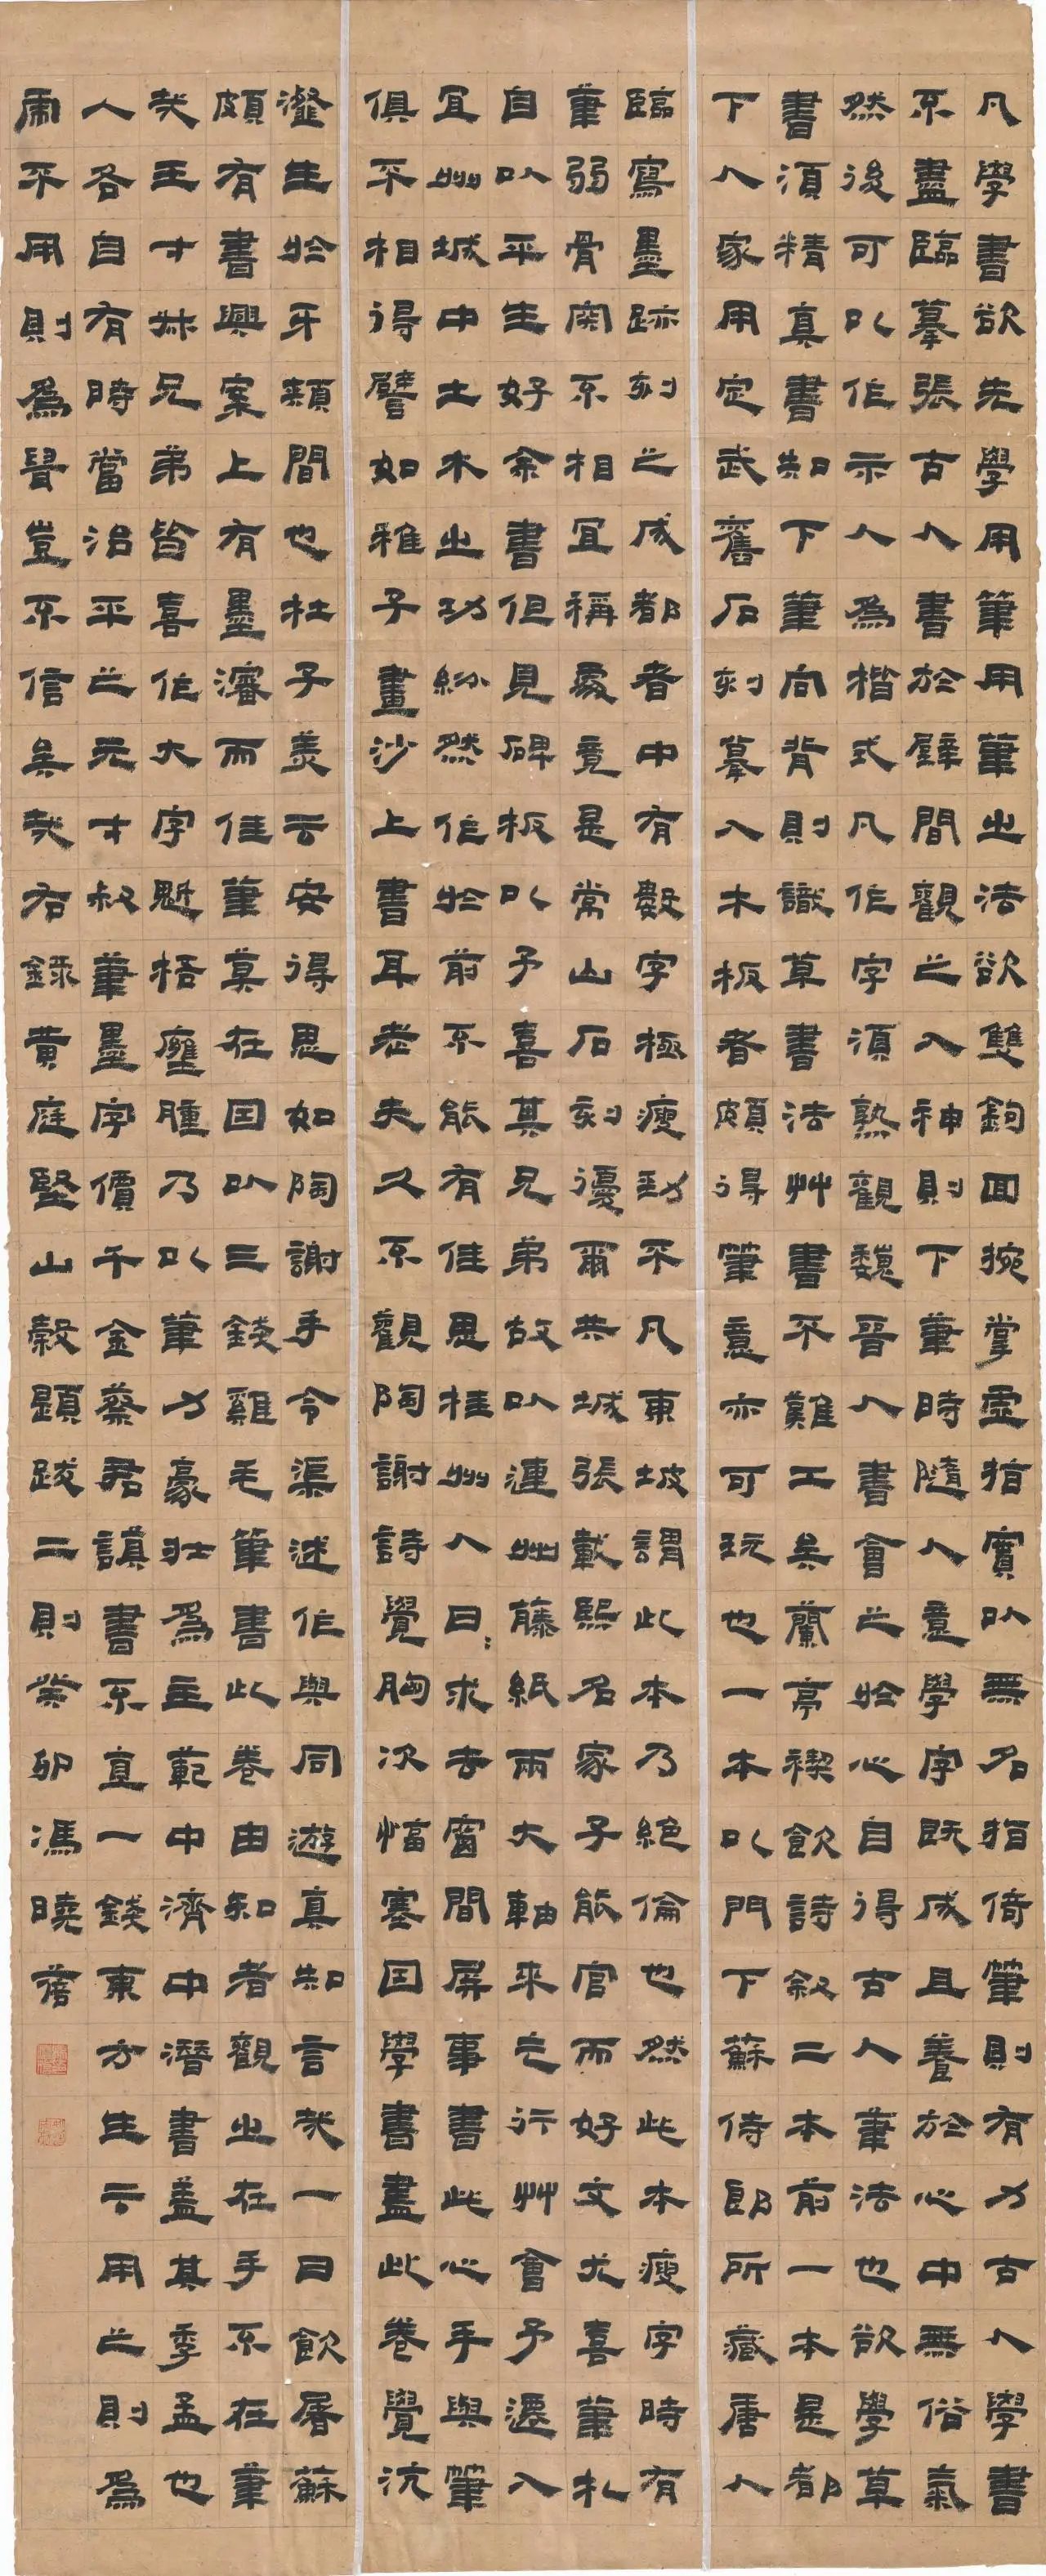 凡學書欲先學用筆用筆之法欲雙鉤回腕掌虛指實以無名指倚筆則有力古人學書
不盡臨摹張古人書於壁間觀之入神則下筆時隨人意學字既成且養於心中無俗氣
然後可以作示人為楷式凡作字須熟觀魏晉人書會之於心自得古人筆法也欲學草
書須精真書知下筆向背則識草書法草書不難工矣蘭亭禊飲詩敘二本前一本是都
下人家用定武舊石刻摹入木板者頗得筆意亦可玩也一本以門下蘇侍郎所藏唐人
臨寫墨跡刻之成都者中有數字極瘦勁不凡東坡謂此本乃絕倫也然此本瘦字時有
筆弱骨肉不相宜稱處竟是常山石刻優爾共城張載熙名家子能官而好文尤喜筆札
自以平生好余書但見碑板以予喜其兄弟故以連州藤紙兩大軸來乞行艸會予遷入
宜州城中土木之功紛然作於前不能有佳思桂州人日求去窗間屏事書此心手與筆
俱不相得譬如稚子畫沙上書耳老夫久不觀陶謝詩覺胸次愊塞因學書盡此卷覺沆
瀣生於牙頰間也杜子美云安得思如陶謝手令渠述作與同遊真知言哉一日飲屠蘇
頗有書興案上有墨瀋而佳筆莫在因以三錢雞毛筆書此卷由知者觀之在手不在筆
哉王才叔兄弟皆喜作大字魁梧癰腫乃以筆力豪壯為主範中濟中潛書蓋其季孟也
人各自有時當治平之元才叔筆墨字價千金蔡君謨書不直一錢東方生云用之則為
虎不用則為鼠豈不信矣哉右錄黃庭堅山谷題跋二則癸卯馮曉舊